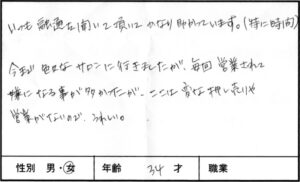 いつも融通を聞いて頂いてかなり助かっています。(特に時間)
今まで色々なサロンに行きましたが、毎回営業されて
嫌になる事が多かったが、ここは変な押し売りや
営業がないので、うれしい。
性別 男・女 年齢 34才 職業